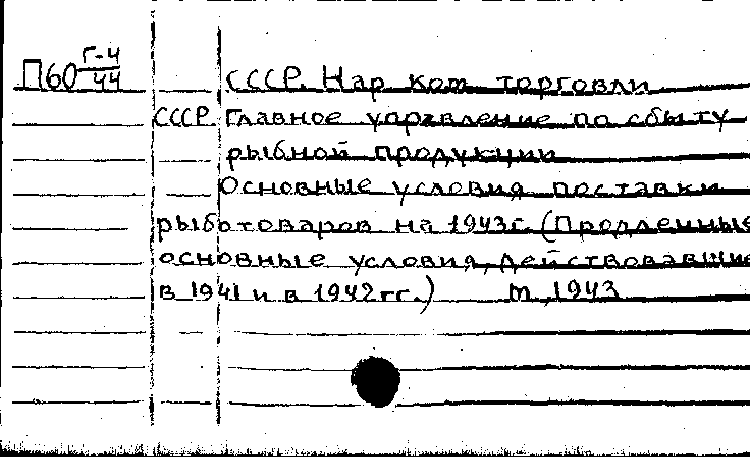 П60 Г-4/44
СССР. Нар ком торговли
СССР. Главное управление по сбыту
рыбной продукции
Основные условия поставки
рыботоваров на 1943г. (Продленные
основные условия, действовавшие
в 1941 и в 1942 гг.) М, 1943